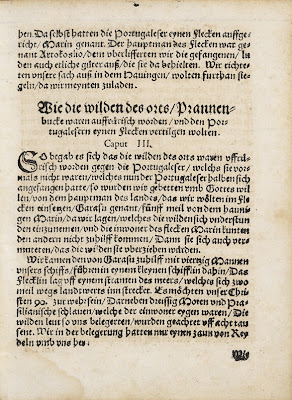 ben. Daselbst hatten die Portugaleser eynen Flecken auffge-
richt/ Marin genant. Der hauptman des Flecken war ge-
nant Artokoslio/ dem vberlifferten wir die gefangenen/ lu
den auch etliche güter auß/ die sie da behielten. Wir richte-
ten vnsere sach auß in dem Hauingen/ wolten furthan sie-
geln/ da wir meynten zuladen.
Wie die wilden des orts/ Prannen-
bucke waren auffrůrisch worden/ vnd den Por
tugalesern eynen Flecken vertilgen wolten.
Caput III.
SO begab es sich das die wilden des orts waren vffrů-
risch worden gegen die Portugaleser/ welchs sie vor-
mals nicht waren/ welchs nun der Portugaleser halben sich
angefangen hatte/ so wurden wir gebetten vmb Gottes wil
len/ von dem hauptman des landts/ das wir wölten im flec
ken einsetzen/ Garasu genant/ fünff meil von dem hauin-
gen Marin/ da wir lagen/ welches die wilden sich vnderstun
den einzunemen/ vnd die inwoner des flecken Marin kunten
den andern nicht zuhilff kommen/ Dann sie sich auch ver-
muteten/ das die wilden sie vberziehen würden.
Wir kamen den von Garasu zuhilff mit viertzig Mannen
vnsers schiffs/ fůhren in eynem kleynen schifflin dahin/ Das
flecklin lag vff eynem strammen des meers/ welches sich zwo
meil wegs landtwerts inn strecket. Es möchten vnser Chri
sten 90. zur wehr sein/ Darneben dreissig Moren vnd Pra-
silianische schlauen/ welche der einwoner eygen waren/ Die
wilden leut so vns belegerten/ wurden geachtet vff acht tau
sent. Wir in der belegerung hatten nur eynen zaun von Rey
deln vmb vns her.